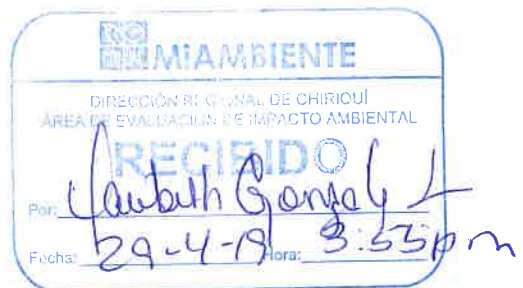 MIAMBIENTE
DIRECCIÓN REGIONAL DE CHIRIQUÍ
ÁREA DE EVALUACIÓN DE IMPACTO AMBIENTAL
RECIBIDO
Por:
Fecha: 29-4-19 Hora: 3:55pm